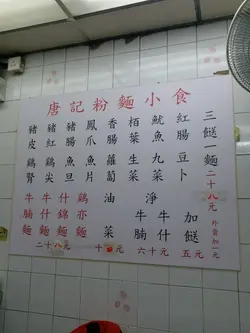 唐記粉麵小食
三餸一麵二十八元
外賣加一元
紅腸豆卜
魷魚九菜
栢葉生菜
香腸蘿
鳳爪魚片
豬腸魚旦
豬紅鷄尖
豬皮鷄腎
加餸五元
淨
牛什
牛腩
六十元
油菜
十元
鷄亦麵
什錦麵
牛什麵
牛腩麵
二十八元